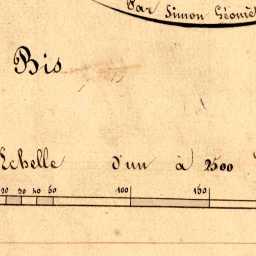 Par Simon Géomèt
Bis
Echelle d'un à 2500
20 30 40 50 100 150